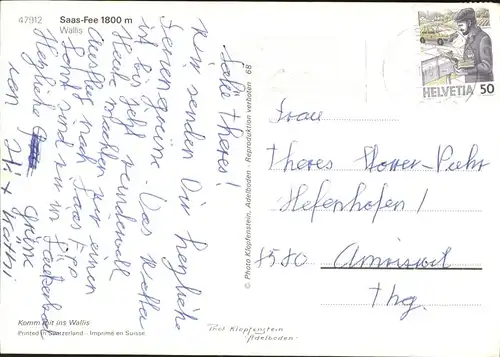 47912
Saas-Fee 1800 m
Wallis
Salü Theres!
Wir senden Dir herzliche
Feriengrüsse. Das Wetter
ist bis jetzt wundervoll
Heute machten wir einen
Ausflug nach Saas Fee
Sonst sind wir in
Herzliche Grüsse
von
+ Kathi
Komm mit ins Wallis
Printed in Switzerland - Imprimé en Suisse
© Photo Klopfenstein, Adelboden - Reproduktion verboten 68
Phot Klopfenstein
Adelboden
HELVETIA 50
Frau
Theres
Hefenhofen /
8580 Amriswil
Thg.